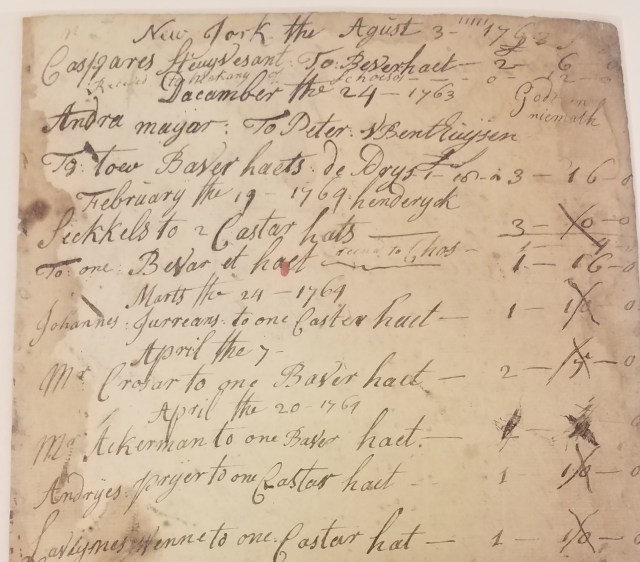 New York the Agust 3 - 1763
Caspares Stuyvesant To Beverhaet - 2 - 6 - 0
0 - 12 - 0
Dacamber the 24 - 1763
Andra mayar: To Peter: V Benthuysen
To: tow Baver haets: de Prys 3 - 16 - 0
February the 19 - 1764 henderyck
Seckkels to 2 Castar hats 3 - 10 - 0
To: one: Bevar et haet 1 - 16 - 0
Marts the 24 - 1764
Johannes: Jurreans: to one Caster haet - 1 - 10 - 0
April the 7 -
Mr Crosar to one Baver haet - 2 - 5 - 0
April the 20 - 1764
Mr Ackerman to one Baver haet. -
Andryes Pryer to one Castar haet - 1 - 10 - 0
Wenne to one: Castar hat - 1 - 10 - 0